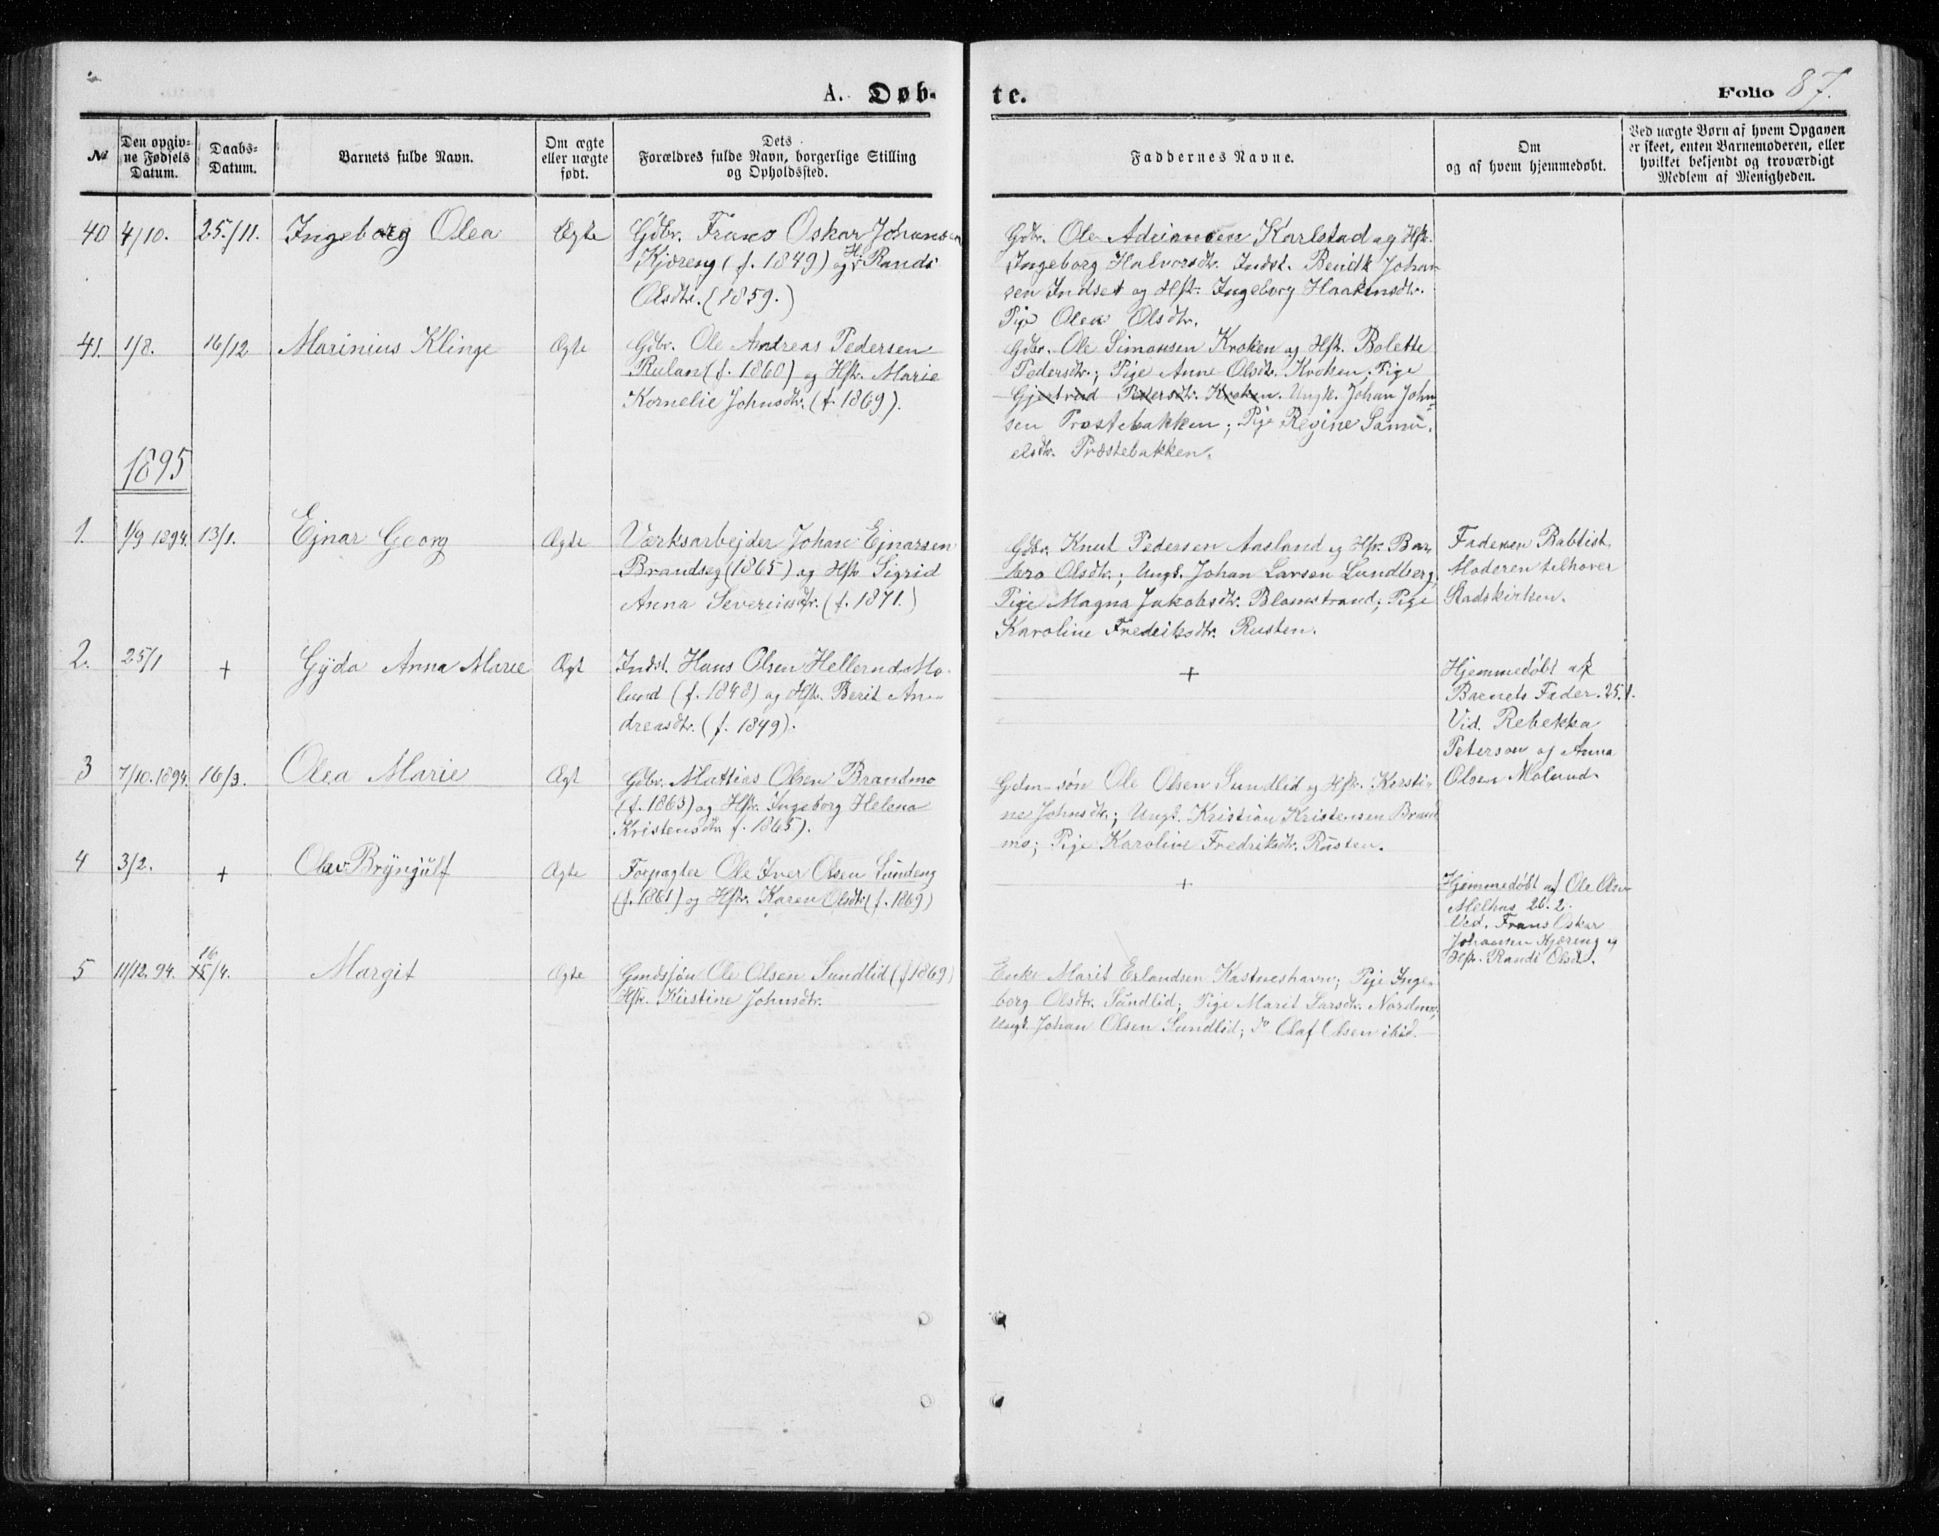 A. Døb-
te.
Folio 87.
No
Den opgiv-
ne Fødsels
Datum.
Daabs-
Datum.
Barnets fulde Navn.
Om ægte
eller uægte
født.
Dets
Forældres fulde Navn, borgerlige Stilling
og Opholdssted.
Faddernes Navne.
Om
og af hvem hjemmedøbt.
Ved uægte Børn af hvem Opgaven
er skeet, enten Barnemoderen, eller
hvilket bekjendt og troværdigt
Medlem af Menigheden.
40 4/10. 25./11. Ingeborg Olea Ægte
Gdbr. Frans Oskar Johansen
Kjæreng (f. 1849) og H. Randi
Olsdtr. (1859.)
Gdbr. Ole Adriansen Karlstad og Hstr.
Ingeborg Halvorsdtr. Indst. Bendik Johan-
sen Indset og Hstr. Ingeborg Haakensdtr.
Pige Olea Olsdtr.
41. 1/8. 16/12 Marinius Klinge Ægte
Gdbr. Ole Andreas Pedersen
Ruland (f. 1860) og Hstr. Marie
Kornelie Johnsdtr. (f. 1869).
Gdbr. Ole Simonsen Kroken og Hstr. Bolette
Pedersdtr.; Pige Anne Olsdtr. Kroken. Pige
Gjertrud Pedersdtr. Kroken. Ungk. Johan John-
sen Præstebakken; Pige Regine Samu-
elsdtr. Præstebakken.
1895
1. 1/9 1894. 13/1. Ejnar Georg Ægte
Værksarbejder Johan Ejnarsen
Brandseg (1865) og Hstr Sigrid
Anna Severinsdtr. (f. 1871.)
Gdbr. Knut Pedersen Aasland og Hstr. Bar-
bro Olsdtr.; Ungk. Johan Larsen Lundberg,
Pige Magna Jakobsdtr. Blomstrand; Pige
Karoline Fredriksdtr. Rusten.
Faderen Babtist.
Moderen tilhører
Stadskirken.
2. 25/1 + Gyda Anna Marie Ægt
Indst. Hans Olsen Hellernd. Mo-
lund (f. 1848) og Hstr. Berit An-
dreasdtr. (f. 1849).
+
Hjemmedøbt af
Barnets Fader. 25.1.
Vid. Rebekka
Peterson og Anna
Olsen Molund.
3 7/10.1894. 16/3. Olea Marie Ægt
Gdbr. Mattias Olsen Brandmo
(f. 1865) og Hstr. Ingeborg Helena
Kristensdtr f. 1865).
Gdm-søn Ole Olsen Sundlid og Hstr. Kersti-
ne Johnsdtr.; Ungk. Kristian Kristensen Brand-
mo; Pige Karoline Fredriksdtr. Rusten.
4 3/2. + Olav Bryngülf Ægte
Forpagter Ole Iver Olsen Sundeng
(f. 1861) og Hstr. Karen Olsdtr (f. 1869)
+
Hjemmedøbt af Ole Olsen
Melhus 26.2.
Ved. Frans Oskar
Johansen Kjæreng og
Hstr. Randi Olsdt.
5 11/12.94. 15/4. 16 Margit Ægte
Gmdsjøn Ole Olsen Sundlid (f. 1869)
Hstr. Kirstine Johnsdtr.
Enke Marit Erlandsen Kastneshavn; Pige Inge-
borg Olsdtr. Sundlid; Pige Marit Larsdtr. Nordmo;
Ungk. Johan Olsen Sundlid; do Olaf Olsen ibid.